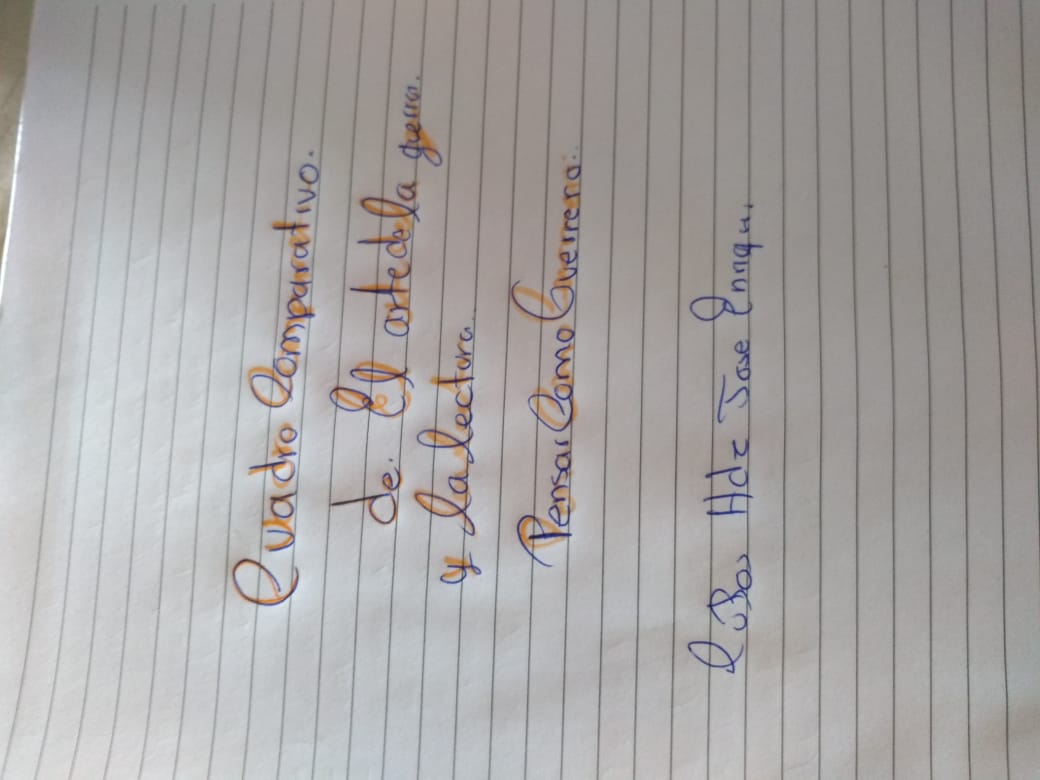 Cuadro Comparativo.
de. El arte de la guerra.
y la lectura..
Pensar Como Guerrero..
Hdz Jose Enriqu.